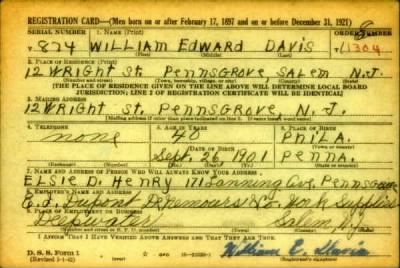 REGISTRATION CARD—(Men born on or after February 17, 1897 and on or before December 31, 1921)
SERIAL NUMBER 1. NAME (Print) ORDER NUMBER
874 WILLIAM EDWARD DAVIS 11304
(First) (Middle) (Last)
2. PLACE OF RESIDENCE (Print)
12 WRIGHT ST. PENNSGROVE SALEM N.J.
(Number and street) (Town, township, village, or city) (County) (State)
[THE PLACE OF RESIDENCE GIVEN ON THE LINE ABOVE WILL DETERMINE LOCAL BOARD
JURISDICTION; LINE 2 OF REGISTRATION CERTIFICATE WILL BE IDENTICAL]
3. MAILING ADDRESS
12 WRIGHT ST. PENNSGROVE, N.J.
[Mailing address if other than place indicated on line 2. If same insert word same]
4. TELEPHONE 5. AGE IN YEARS 6. PLACE OF BIRTH
none 40 PHILA.
DATE OF BIRTH (Town or county)
Sept. 26, 1901 PENNA.
(Exchange) (Number) (Mo.) (Day) (Yr.) (State or country)
7. NAME AND ADDRESS OF PERSON WHO WILL ALWAYS KNOW YOUR ADDRESS
ELSIE D. HENRY 171 Lanning Ave, Pennsgrove
8. EMPLOYER'S NAME AND ADDRESS
E.I. Dupont DeNemours & Co. Work Supplies
9. PLACE OF EMPLOYMENT OR BUSINESS
Deepwater Salem, N.J.
(Number and street or R. F. D. number) (Town) (County) (State)
I AFFIRM THAT I HAVE VERIFIED ABOVE ANSWERS AND THAT THEY ARE TRUE.
D. S. S. FORM 1
(Revised 1-1-42)
William E. Davis